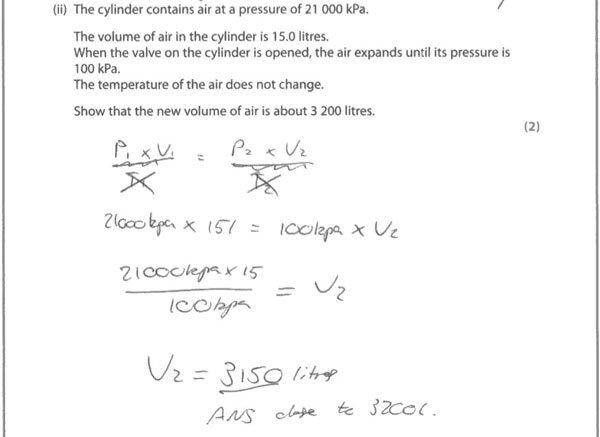 (ii) The cylinder contains air at a pressure of 21 000 kPa.
The volume of air in the cylinder is 15.0 litres.
When the valve on the cylinder is opened, the air expands until its pressure is
100 kPa.
The temperature of the air does not change.
Show that the new volume of air is about 3 200 litres.
(2)
P₁ x V₁ = P₂ x V₂
21000kpa x 15l = 100kpa x V₂
21000kpa x 15
100kpa
= V₂
V₂ = 3150 litres
ANS close to 3200l.